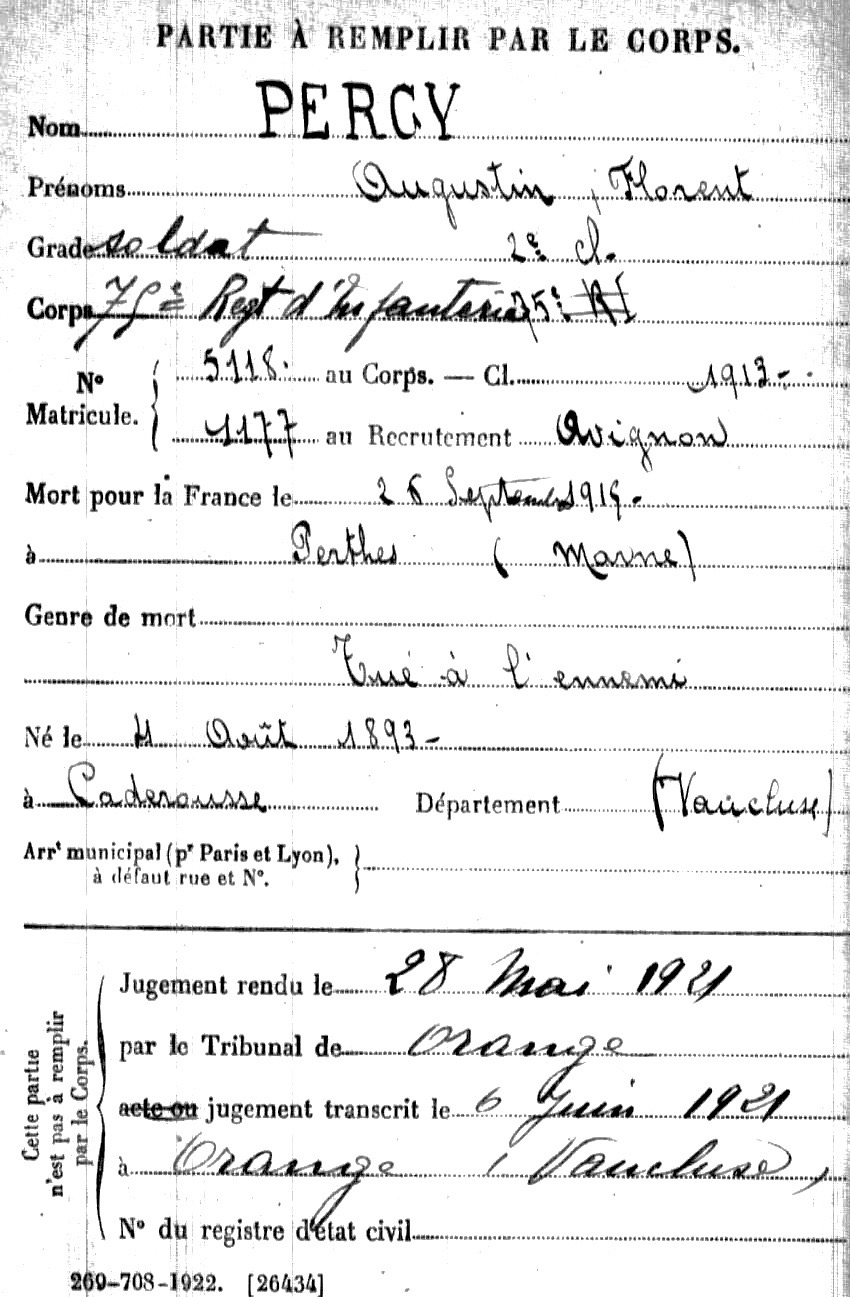 PARTIE À REMPLIR PAR LE CORPS.
Nom PERCY
Prénoms Augustin, Florent
Grade soldat 2e cl.
Corps 75e Regt d'Infanterie 75e RI
No Matricule. 5118. au Corps. — Cl. 1913-
1177 au Recrutement Avignon
Mort pour la France le 26 Septembre 1915-
à Perthes (Marne)
Genre de mort
Tué à l'ennemi
Né le Août 1893-
à Caderousse Département (Vaucluse)
Arrt municipal (pr Paris et Lyon),
à défaut rue et No.
Cette partie n'est pas à remplir par le Corps.
Jugement rendu le 28 Mai 1921
par le Tribunal de Orange
acte ou jugement transcrit le 6 Juin 1921
à Orange (Vaucluse)
No du registre d'état civil
269-708-1922. [26434]